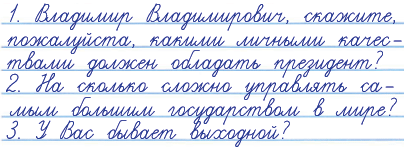 1. Владимир Владимирович, скажите,
пожалуйста, какими личными качес-
твами должен обладать президент?
2. На сколько сложно управлять са-
мым большим государством в мире?
3. У Вас бывает выходной?